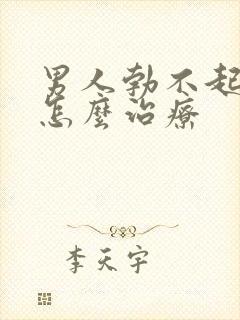 男人勃不起
怎麼治療
李天宇